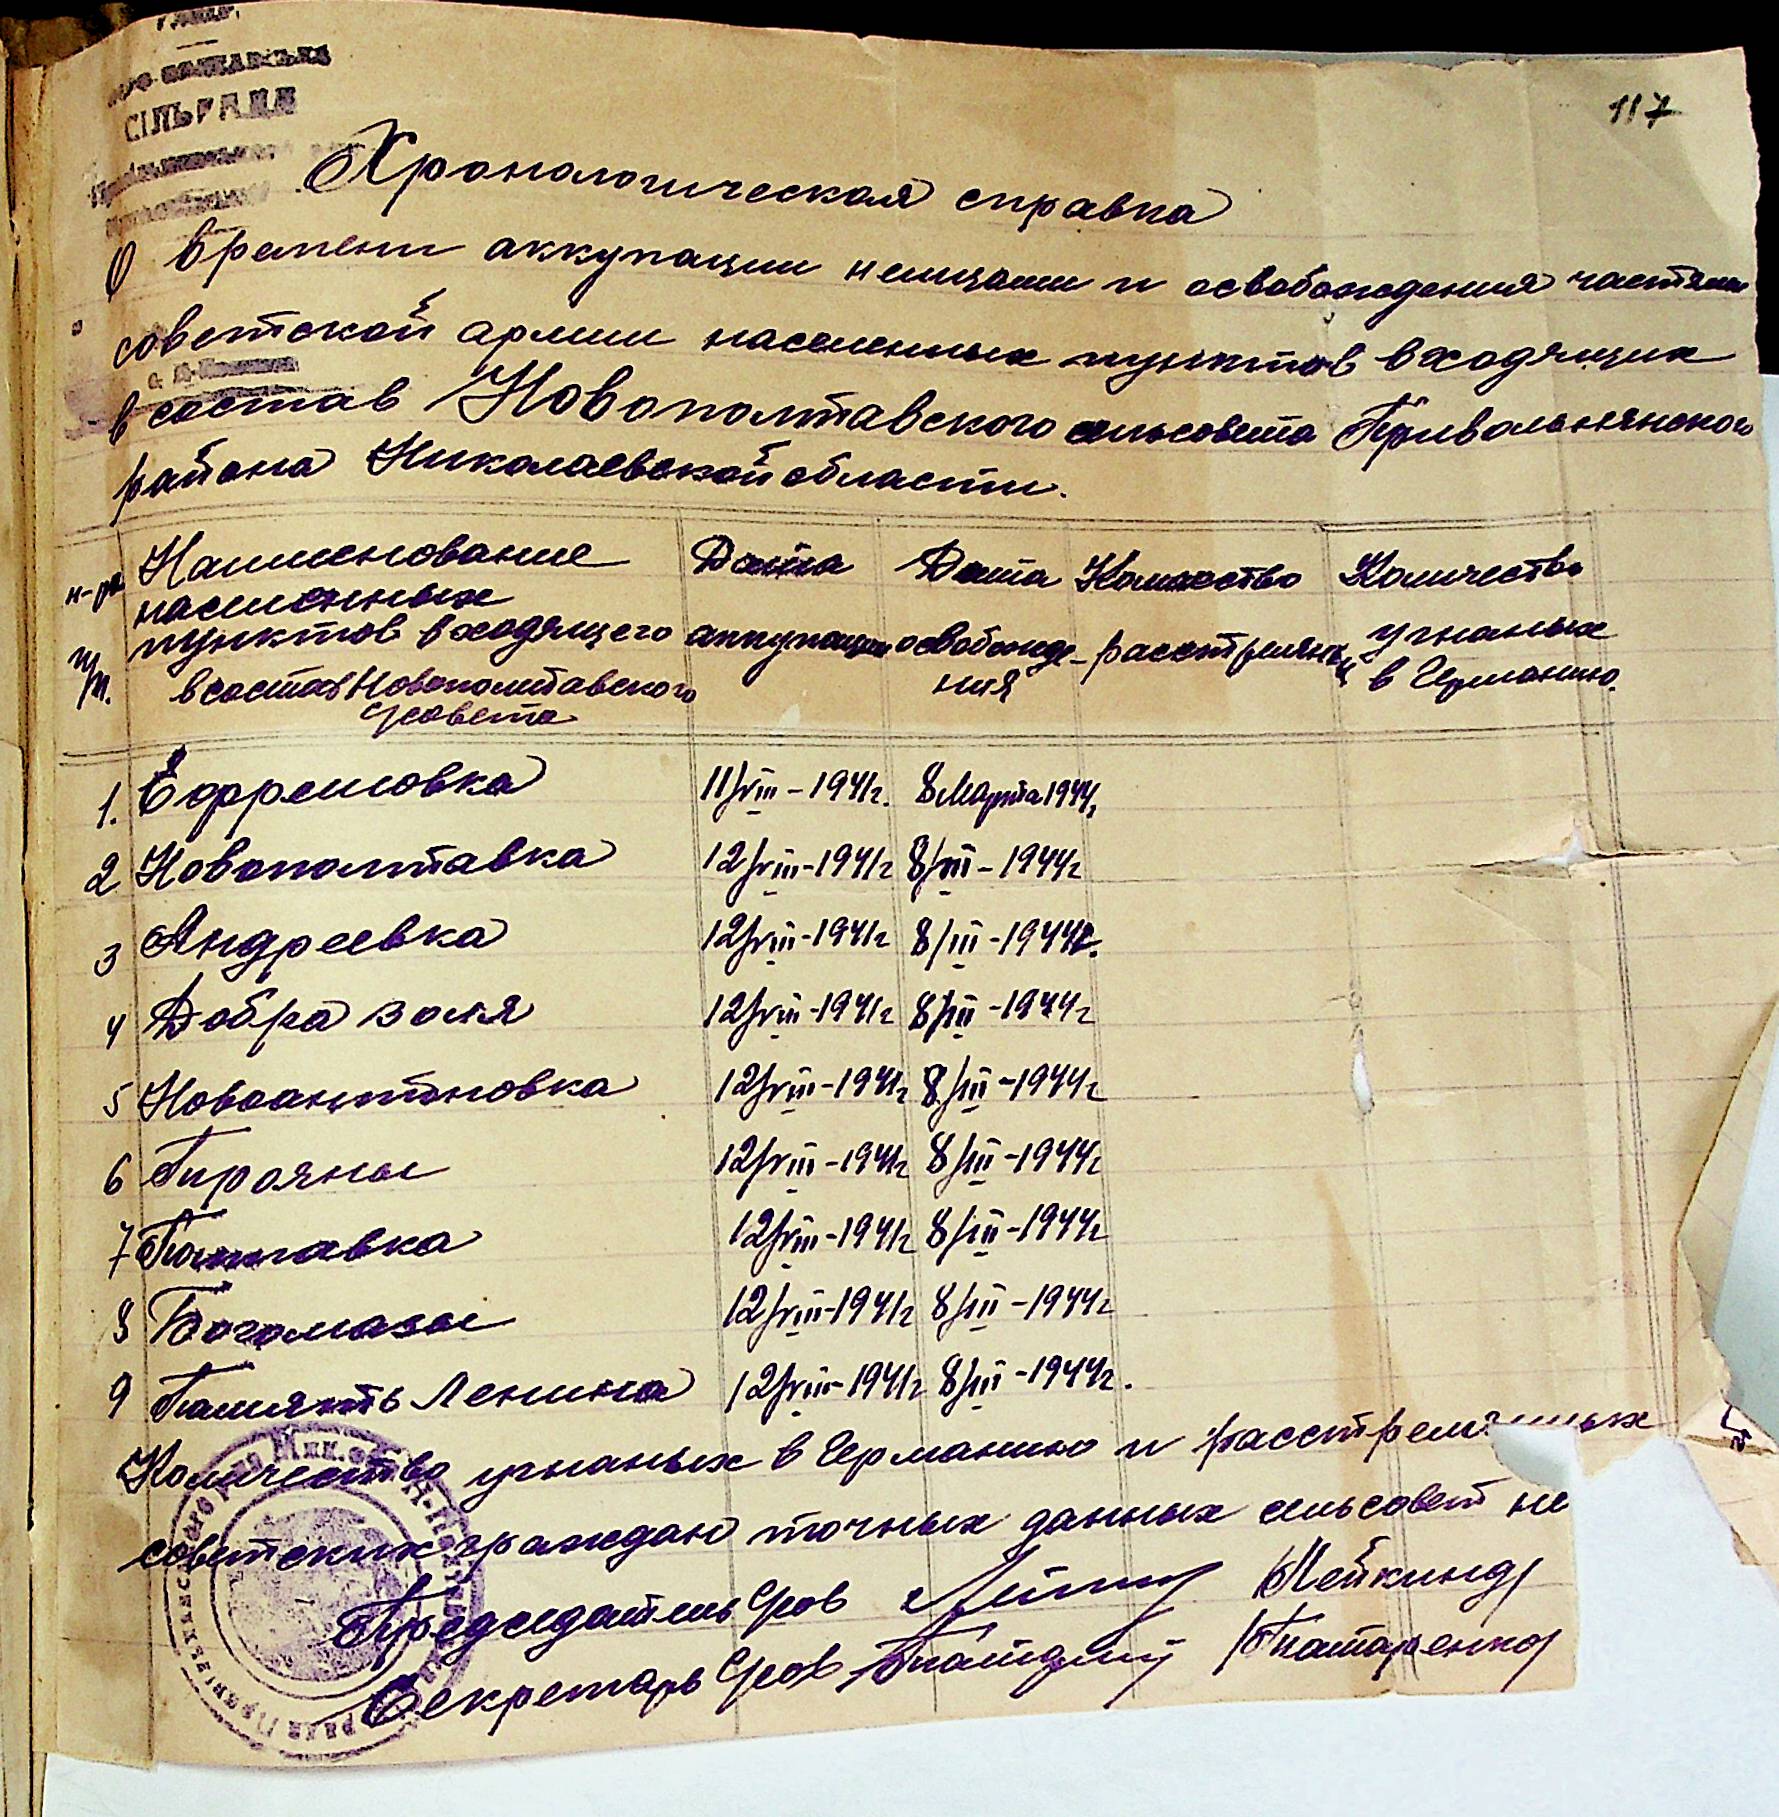 СІЛЬРАДА
117
Хронологическая справка
О времени аккупации немцами и освобождения частями
советской армии населенных пунктов входящих
в состав Новополтавского сельсовета Привольнянского
района Николаевской области.
н-ра п/п.
Наименование населенных пунктов входящего в состав Новополтавского с/совета
Дата аккупации
Дата освобожде-ния
Количество расстрелянных
Количество угнаных в Германию.
1. Ефремовка 11/VIII-1941г. 8 Марта 1944г.
2 Новополтавка 12/VIII-1941г 8/III-1944г
3 Андреевка 12/VIII-1941г 8/III-1944г.
4 Добра воля 12/VIII-1941г 8/III-1944г
5 Новоантоновка 12/VIII-1941г 8/III-1944г
6 Трояны 12/VIII-1941г 8/III-1944г
7 Полтавка 12/VIII-1941г 8/III-1944г
8 Богомазы 12/VIII-1941г 8/III-1944г
9 Памяять Ленина 12/VIII-1941г 8/III-1944г.
Количество угнаных в Германию и расстрелянных
советских граждан точных данных сельсовет не
Председатель с/сов /Мейкинд/
Секретарь с/сов /Пиатаренко/